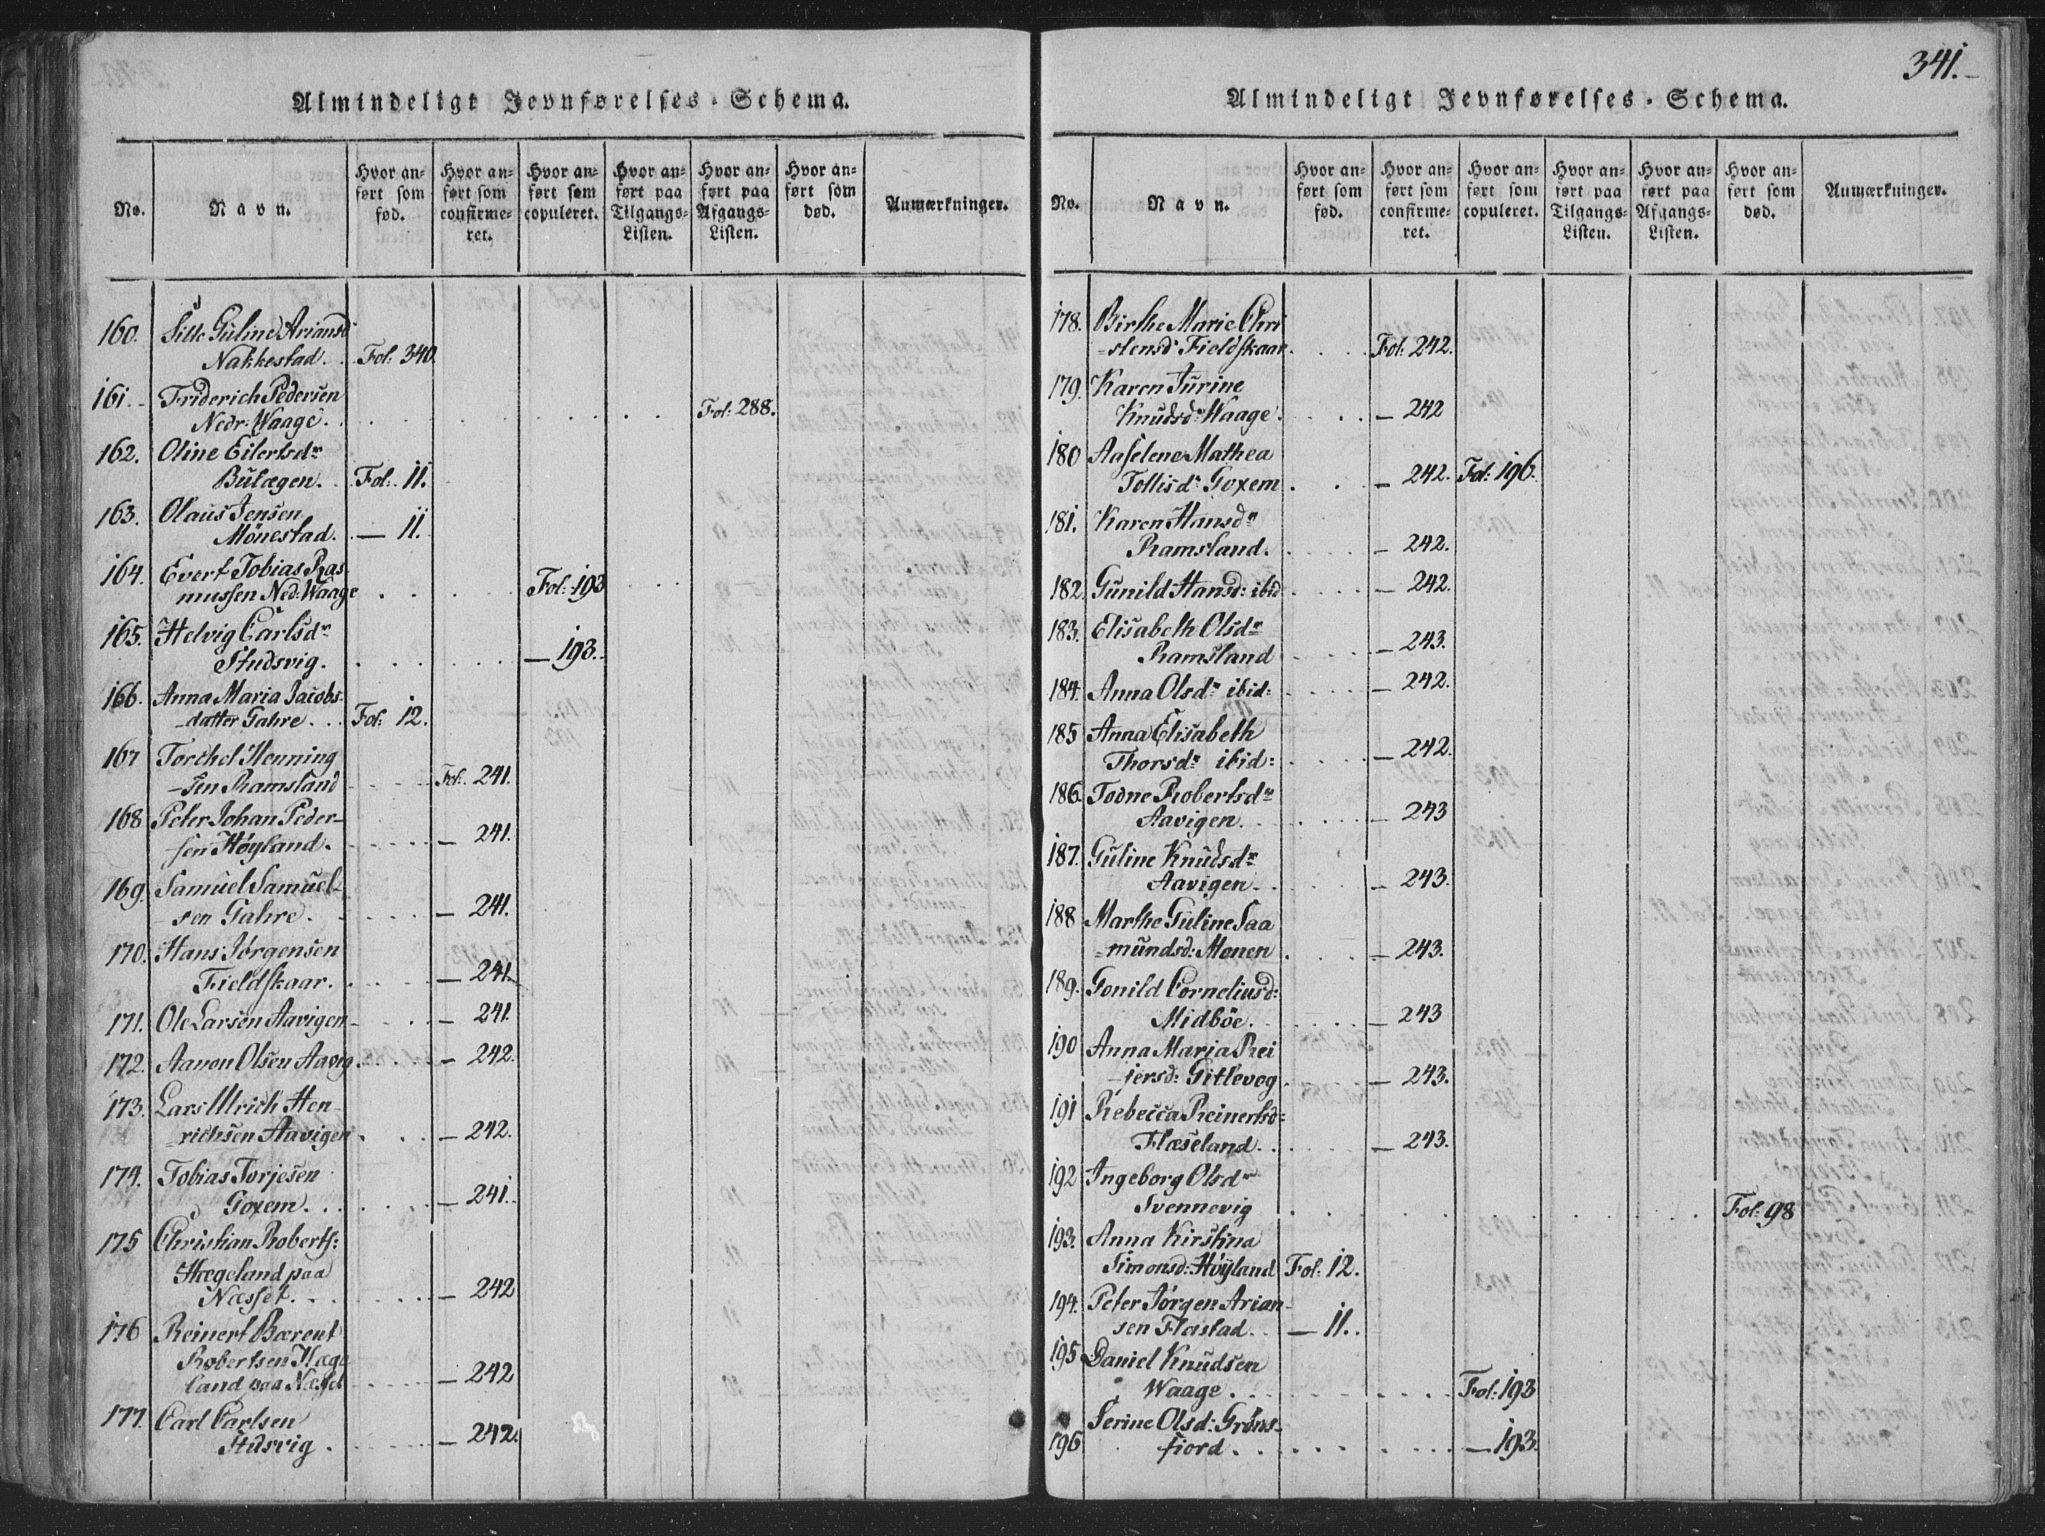 Almindeligt Jevnførelses-Schema.
No.
Navn.
Hvor an-
ført som
fød.
Hvor an-
ført som
confirme-
ret.
Hvor an-
ført som
copuleret.
Hvor an-
ført paa
Tilgangs-
Listen.
Hvor an-
ført paa
Afgangs-
Listen.
Hvor an-
ført som
død.
Anmærkninger.
160. Sille Guline Ariansd
Nakkestad. . . Fol: 340.
161. Friderich Pedersen
Nedr: Waage. . . . . . . . . Fol: 288.
162. Oline Eilertsdr
Bulægen. . Fol: 11.
163. Olaus Jensen
Mønestad. . — 11.
164. Evert Tobias Ras-
mussen Ned: Waage . . . . Fol: 193 . . .
165. Helvig Carlsdr
Studsvig. . . . . . . — 193. .
166. Anna Maria Jacobs-
datter Gahre . . . Fol: 12.
167 Torchel Henning
-sen Ramsland . . . . . Fol: 241.
168 Peter Johan Peder-
sen Høyland. . . . . . — 241.
169. Samuel Samuel-
sen Gahre. . . . . . — 241.
170. Hans Jørgensen
Fieldskaar. . . . . . — 241.
171. Ole Larsen Aavigen . . . . — 241.
172. Aanon Olsen Aavig . . . . — 242.
173. Lars Ulrich Hen-
-richsen Aavigen . . . — 242.
174. Tobias Torjesen
Goxem. . . . . . . — 241. .
175 Christian Roberts:
Hægeland paa
Næsset. . . . . . . . — 242
176 Reinert Bærent
Robertsen Hæge
land paa Næsset . . . . . — 242
177. Carl Carlsen
Studsvig . . . . . . — 242.
341.
Almindeligt Jevnførelses-Schema.
No.
Navn.
Hvor an-
ført som
fød.
Hvor an-
ført som
confirme-
ret.
Hvor an-
ført som
copuleret.
Hvor an-
ført paa
Tilgangs-
Listen.
Hvor an-
ført paa
Afgangs-
Listen.
Hvor an-
ført som
død.
Anmærkninger.
178. Birthe Marie Chri
-stensd: Fieldskaar. . . . Fol: 242.
179. Karen Jurine
Knudsdr Waage. . . . — 242
180 Aaselene Mathea
Tollisd: Goxem . . — 242. Fol: 196.
181. Karen Hansdr
Ramsland. . . . . — 242.
182. Gunild Hansd: ibid . . . . — 242.
183. Elisabeth Olsdr
Ramsland . . . . — 243.
184. Anna Olsdr ibid: . . . . — 242.
185 Anna Elisabeth
Thorsdr ibid: . . . . — 242.
186. Todne Robertsdr
Aavigen. . . . . . — 243
187. Guline Knudsdr
Aavigen. . . . . . — 243.
188 Marthe Guline Saa
=mundsd: Monen . . . . — 243.
189. Gonild Corneliusd:
Midbøe. . . . . . — 243
190 Anna Maria Rei
-jersd: Gitlevog . . . . — 243.
191 Rebecca Reinertsd:
Flæseland. . . . . . — 243.
192 Ingeborg Olsdr
Svennevig . . . . . . . . . . . Fol: 98
193. Anna Kirstina
Simonsd: Høÿland Fol: 12.
194. Peter Jørgen Arian-
sen Flastad. . — 11. .
195 Daniel Knudsen
Waage . . . . . . . . Fol: 193
196 Serine Olsd: Grøns-
fiord . . . . . . . . — 193.